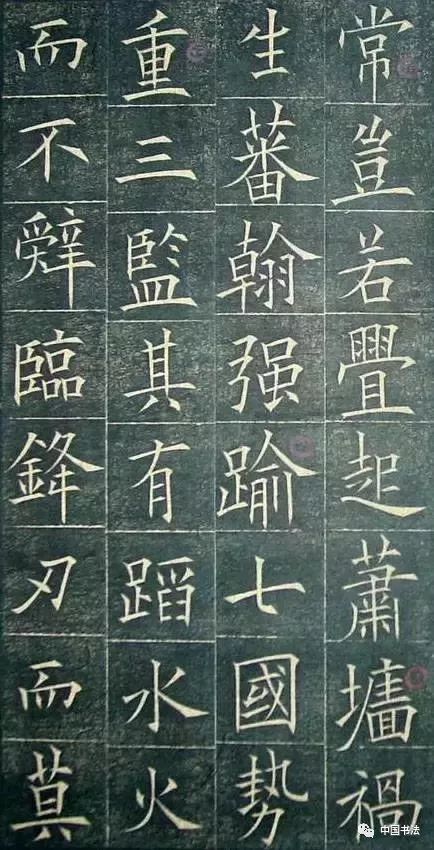 常豈若舋起蕭墻禍
生蕃翰强踰七國勢
重三監其有蹈水火
而不辤臨鋒刃而莫
中国书法